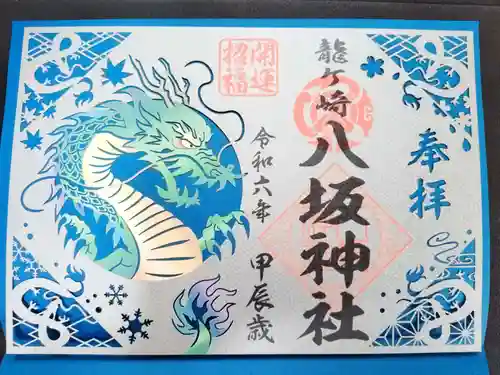 奉拝
龍ケ崎
八坂神社
開運
招福
令和六年
甲辰歳